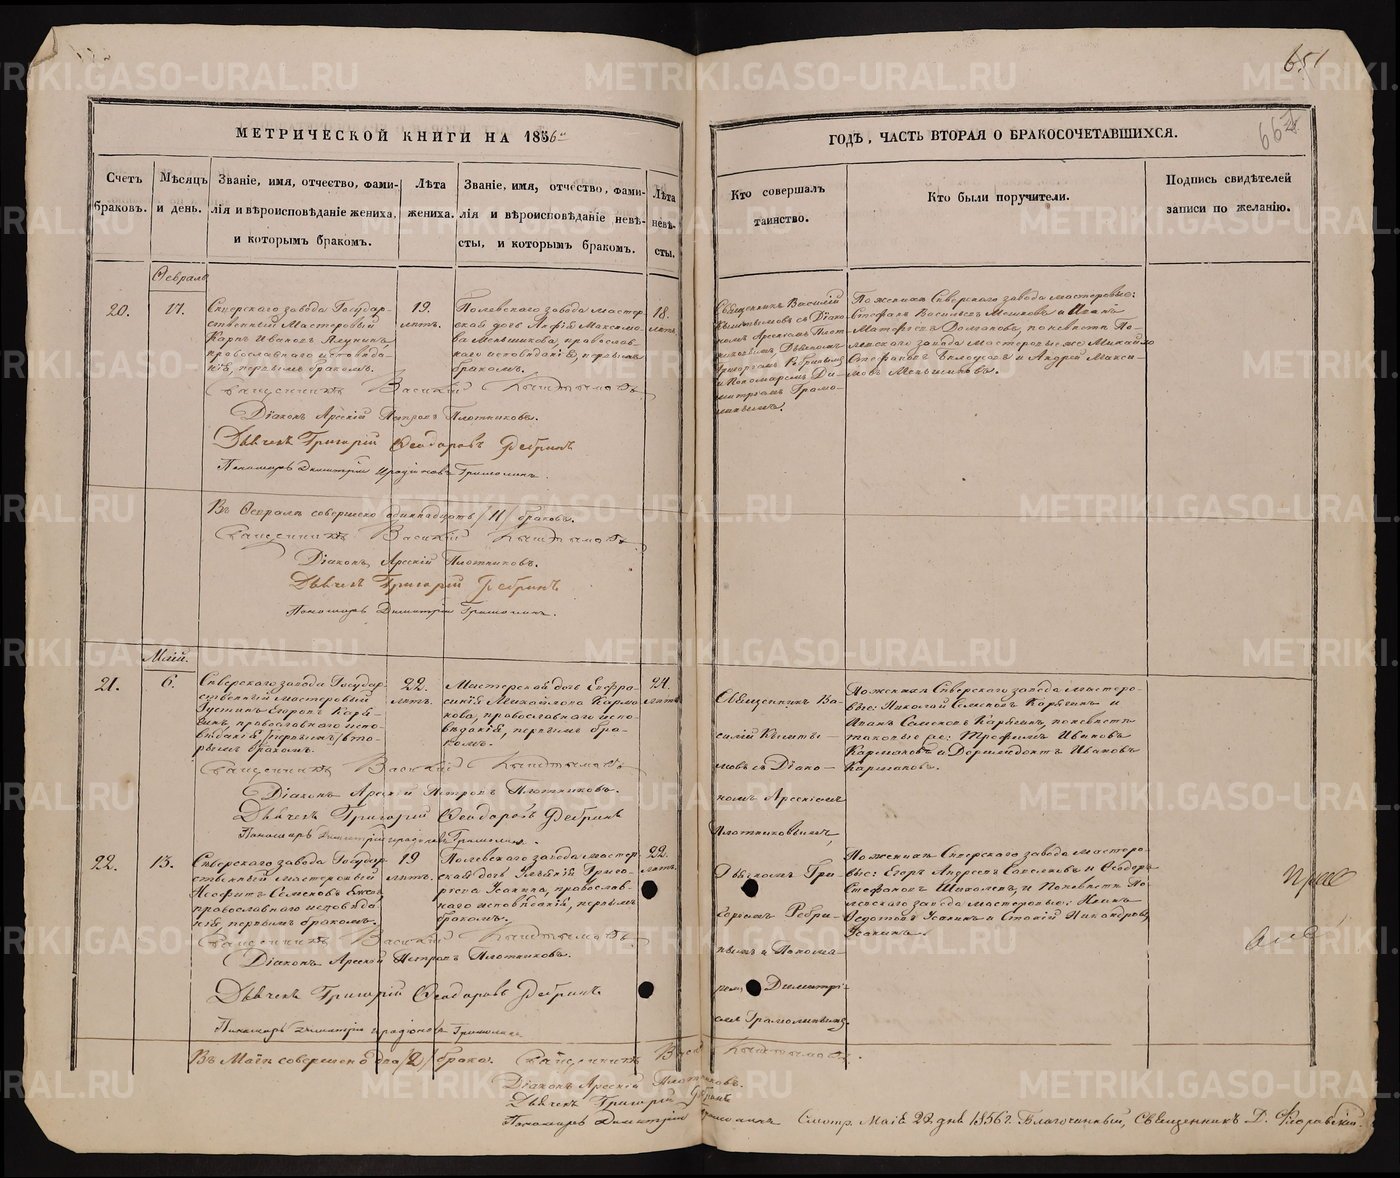 651
66
МЕТРИЧЕСКОЙ КНИГИ НА 1856й
ГОДЪ, ЧАСТЬ ВТОРАЯ О БРАКОСОЧЕТАВШИХСЯ.
Счетъ браковъ.
Мѣсяцъ и день.
Званіе, имя, отчество, фами-
лія и вѣроисповѣданіе жениха,
и которымъ бракомъ.
Лѣта жениха.
Званіе, имя, отчество, фами-
лія и вѣроисповѣданіе невѣ-
сты, и которымъ бракомъ.
Лѣта невѣ-
сты.
Кто совершалъ
таинство.
Кто были поручители.
Подпись свидѣтелей
записи по желанію.
Февраль
20.
17.
Сѣверскаго завода Государ-
ственный Мастеровый
Карпъ Ивановъ
православнаго исповѣда-
нія, первымъ бракомъ.
19.
лѣтъ.
Полевскаго завода мастер-
ская дочь Максимо-
ва Меньшикова, православ-
наго исповѣданія, первымъ
бракомъ.
18.
лѣтъ.
Священникъ Василій
Кыштымовъ съ Діако-
номъ Арсеніемъ Плот-
никовымъ, Дьячкомъ
Григорьемъ Ребринымъ
и Пономаремъ Ди-
митріемъ Грамо-
линымъ.
По женихѣ Сѣверскаго завода мастеровые:
Стефанъ Васильевъ и Иванъ
Матфеевъ по невѣстѣ По-
левскаго завода мастеровые же Михайло
Стефановъ и Андрей Макси-
мовъ Меньшиковъ.
Священникъ Василій Кыштымовъ
Діаконъ Арсеній Петровъ Плотниковъ.
Дьячекъ Григорій Феодоровъ Ребринъ
Пономарь Димитрій Иродіоновъ Грамолинъ.
Въ Февралѣ совершено одиннадцать /11/ браковъ.
Священникъ Василій Кыштымовъ
Діаконъ Арсеній Плотниковъ.
Дьячекъ Григорій Ребринъ
Пономарь Димитрій Грамолинъ.
Май.
21.
6.
Сѣверскаго завода Государ-
ственный мастеровый
Іустинъ Егоровъ
православнаго испо-
вѣданія /первымъ/ вто-
рымъ бракомъ.
22.
лѣтъ.
Мастерская дочь Евфра-
синія Михайлова Карма-
нова, православнаго испо-
вѣданія, первымъ бра-
комъ.
24.
лѣтъ
Священникъ Ва-
силій Кышты-
мовъ съ Діако-
номъ Арсеніемъ
Плотниковымъ,
Дьячкомъ Гри-
горьемъ Ребри-
нымъ и Понома-
ремъ Димитрі-
емъ Грамолинымъ.
По женихѣ Сѣверскаго завода мастеро-
вые: Николай Семеновъ и
Иванъ Семеновъ по невѣстѣ
таковые же: Трофимъ Ивановъ
Кармановъ и Доримедонтъ Ивановъ
Кармановъ.
Священникъ Василій Кыштымовъ
Діаконъ Арсеній Петровъ Плотниковъ.
Дьячекъ Григорій Феодоровъ Ребринъ
Пономарь Димитрій Иродіоновъ Грамолинъ.
22.
13.
Сѣверскаго завода Государ-
ственный мастеровый
Неофитъ Семеновъ
православнаго исповѣда-
нія, первымъ бракомъ.
19
лѣтъ.
Полевскаго завода мастер-
ская дочь Григо-
рьева Усанина, православ-
наго исповѣданія, первымъ
бракомъ.
22.
лѣтъ.
По женихѣ Сѣверскаго завода мастеро-
вые: Егоръ Андреевъ и Феодоръ
Стефановъ и по невѣстѣ По-
левскаго завода мастеровые:
Федотовъ Усанинъ и Никандровъ
Усанинъ.
Священникъ Василій Кыштымовъ
Діаконъ Арсеній Петровъ Плотниковъ.
Дьячекъ Григорій Феодоровъ Ребринъ.
Пономарь Димитрій Иродіоновъ Грамолинъ
Въ Маѣ совершено два /2/ брака.
Священникъ Кыштымовъ.
Діаконъ Арсеній Плотниковъ.
Дьячекъ Григорій Ребринъ
Пономарь Димитрій Грамолинъ
Смотр. Маія 22 дня 1856 г. Благочинный, Священникъ
METRIKI.GASO-URAL.RU